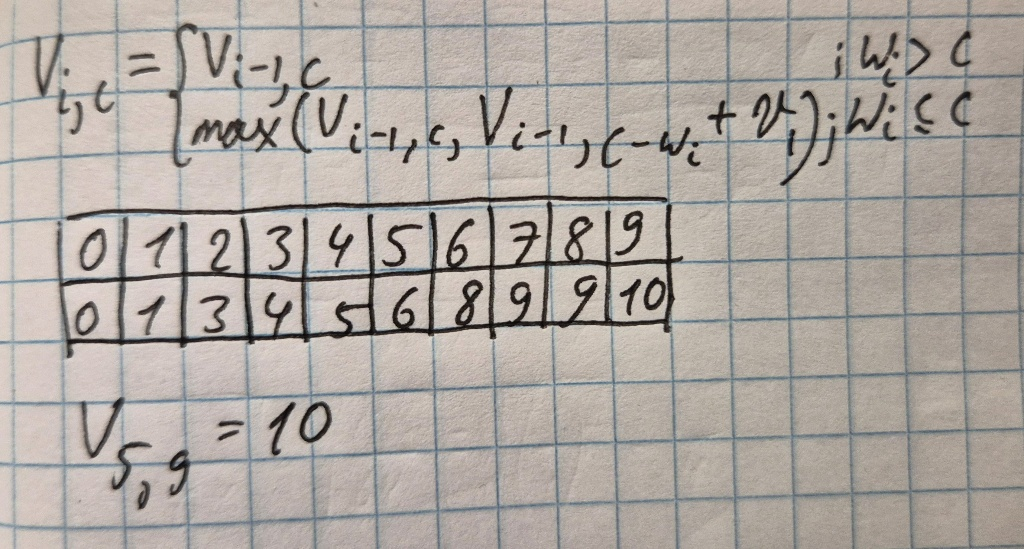 V_{i,c} = { V_{i-1,c} ; w_i > c
max(V_{i-1,c}, V_{i-1,c-w_i} + v_i) ; w_i ≤ c
0 1 2 3 4 5 6 7 8 9
0 1 3 4 5 6 8 9 9 10
V_{5,9} = 10